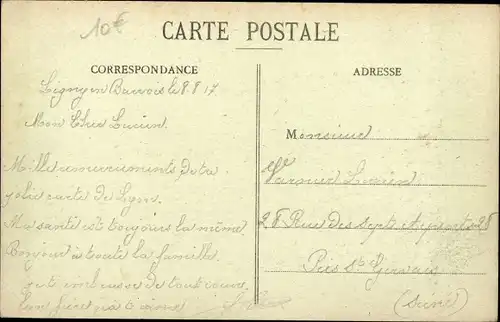 10€
CARTE POSTALE
CORRESPONDANCE
ADRESSE
Ligny en Barrois le 8 8 17
Mon Cher Lucien
Mille remerciements de ta
jolie carte de Lyon.
Ma santé est toujours la même.
Bonjour à toute la famille.
je t embrasse de tout
Monsieur
Lucien
28 Rue des Sept Arpents 28
Prés St Gervais
(Seine)